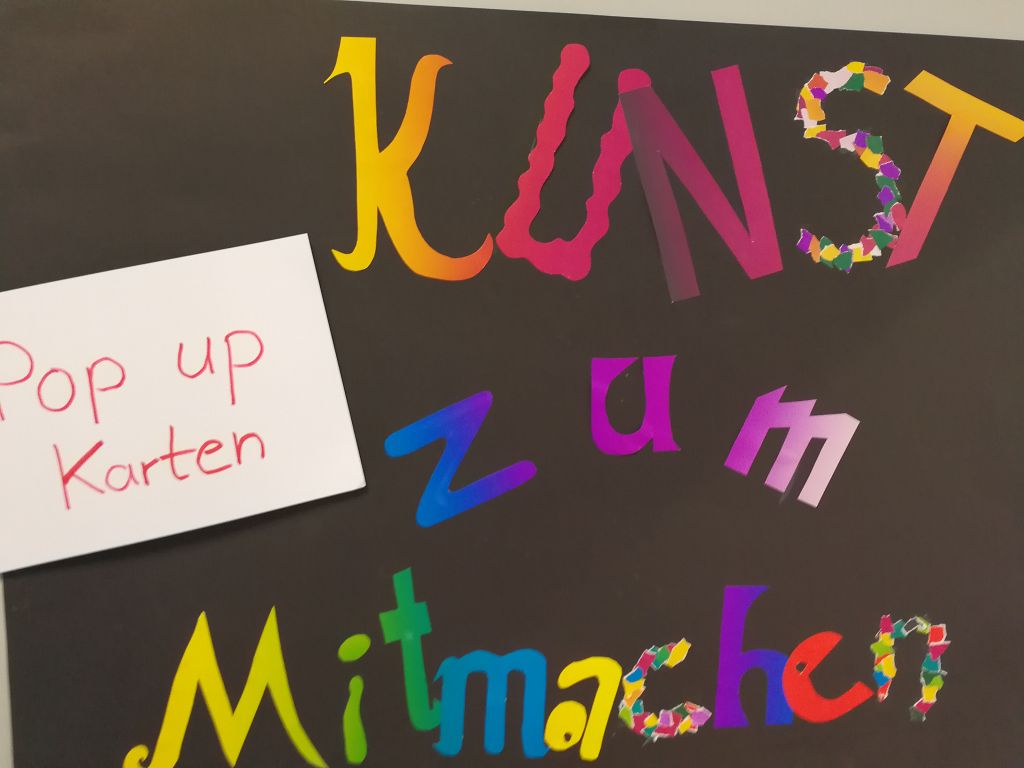 KUNST
zum
Mitmachen
Pop up
Karten